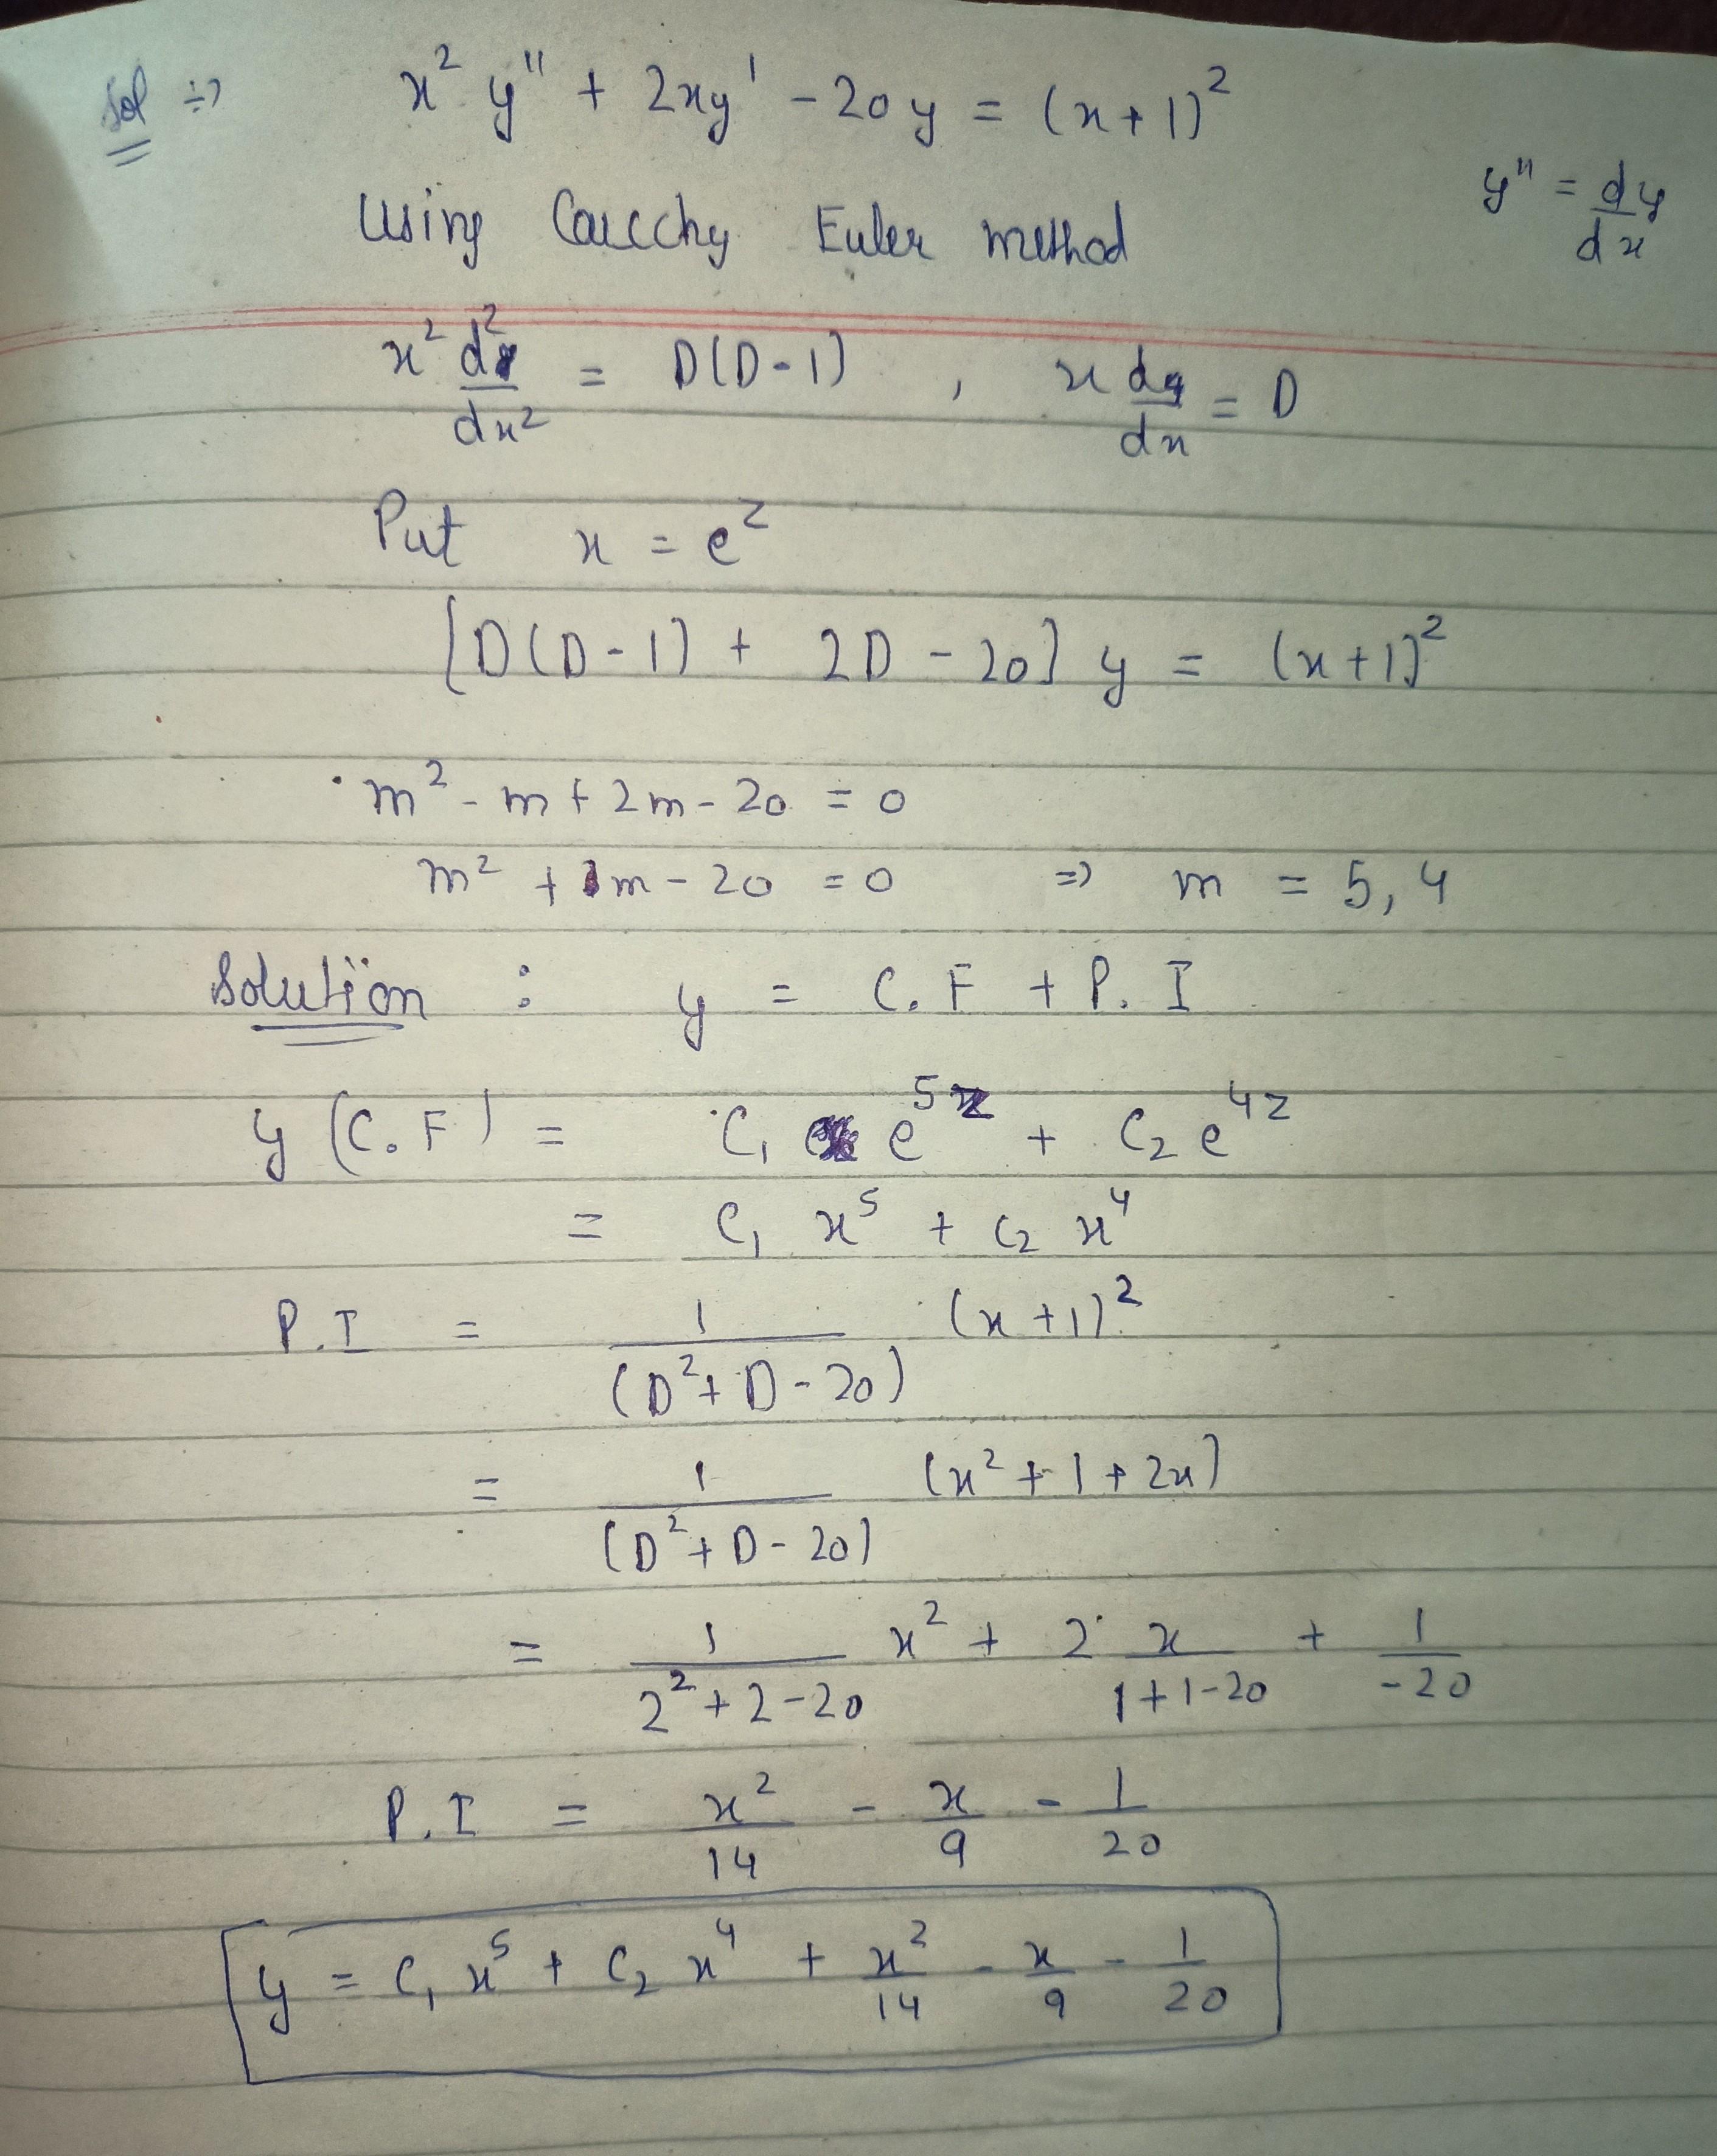 Sol ⇒ x² y'' + 2xy' - 20y = (x+1)²
y'' = dy/dx
Using Caucchy Euler method
x² d²y/dx² = D(D-1) , x dy/dx = D
Put x = e^z
[D(D-1) + 2D - 20] y = (x+1)²
m² - m + 2m - 20 = 0
m² + 1m - 20 = 0 ⇒ m = 5, 4
Solution : y = C.F + P.I
y (C.F) = C₁ e^5z + C₂ e^4z
= C₁ x⁵ + C₂ x⁴
P.I = 1/(D²+D-20) (x+1)²
= 1/(D²+D-20) (x²+1+2x)
= 1/(2²+2-20) x² + 2 x/(1+1-20) + 1/-20
P.I = x²/14 - x/9 - 1/20
y = C₁ x⁵ + C₂ x⁴ + x²/14 - x/9 - 1/20